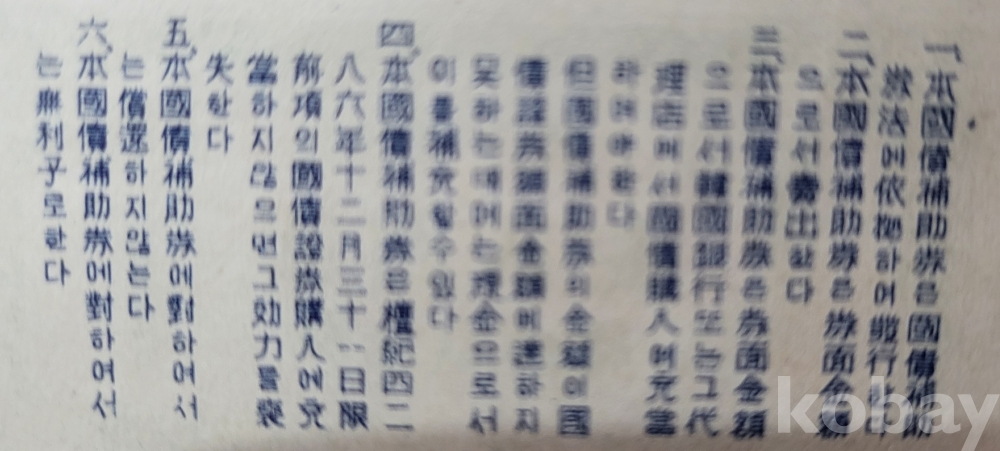 一、本國債補助券은國債補助
券法에依據하여發行하며
二、本國債補助券은券面金額
으로서賣出한다
三、本國債補助券은券面金額
으로서韓國銀行또는그代
理店에서國債購入에充當
하여야한다
但國債補助券의金額이國
債證券額面金額에達하지
못하는때에는現金으로서
이를補充할수있다
四、本國債補助券은檀紀四二
八六年十二月三十一日限
前項의國債證券購入에充
當하지않으면그効力을喪
失한다
五、本國債補助券에對하여서
는償還하지않는다
六、本國債補助券에對하여서
는無利子로한다
kobay